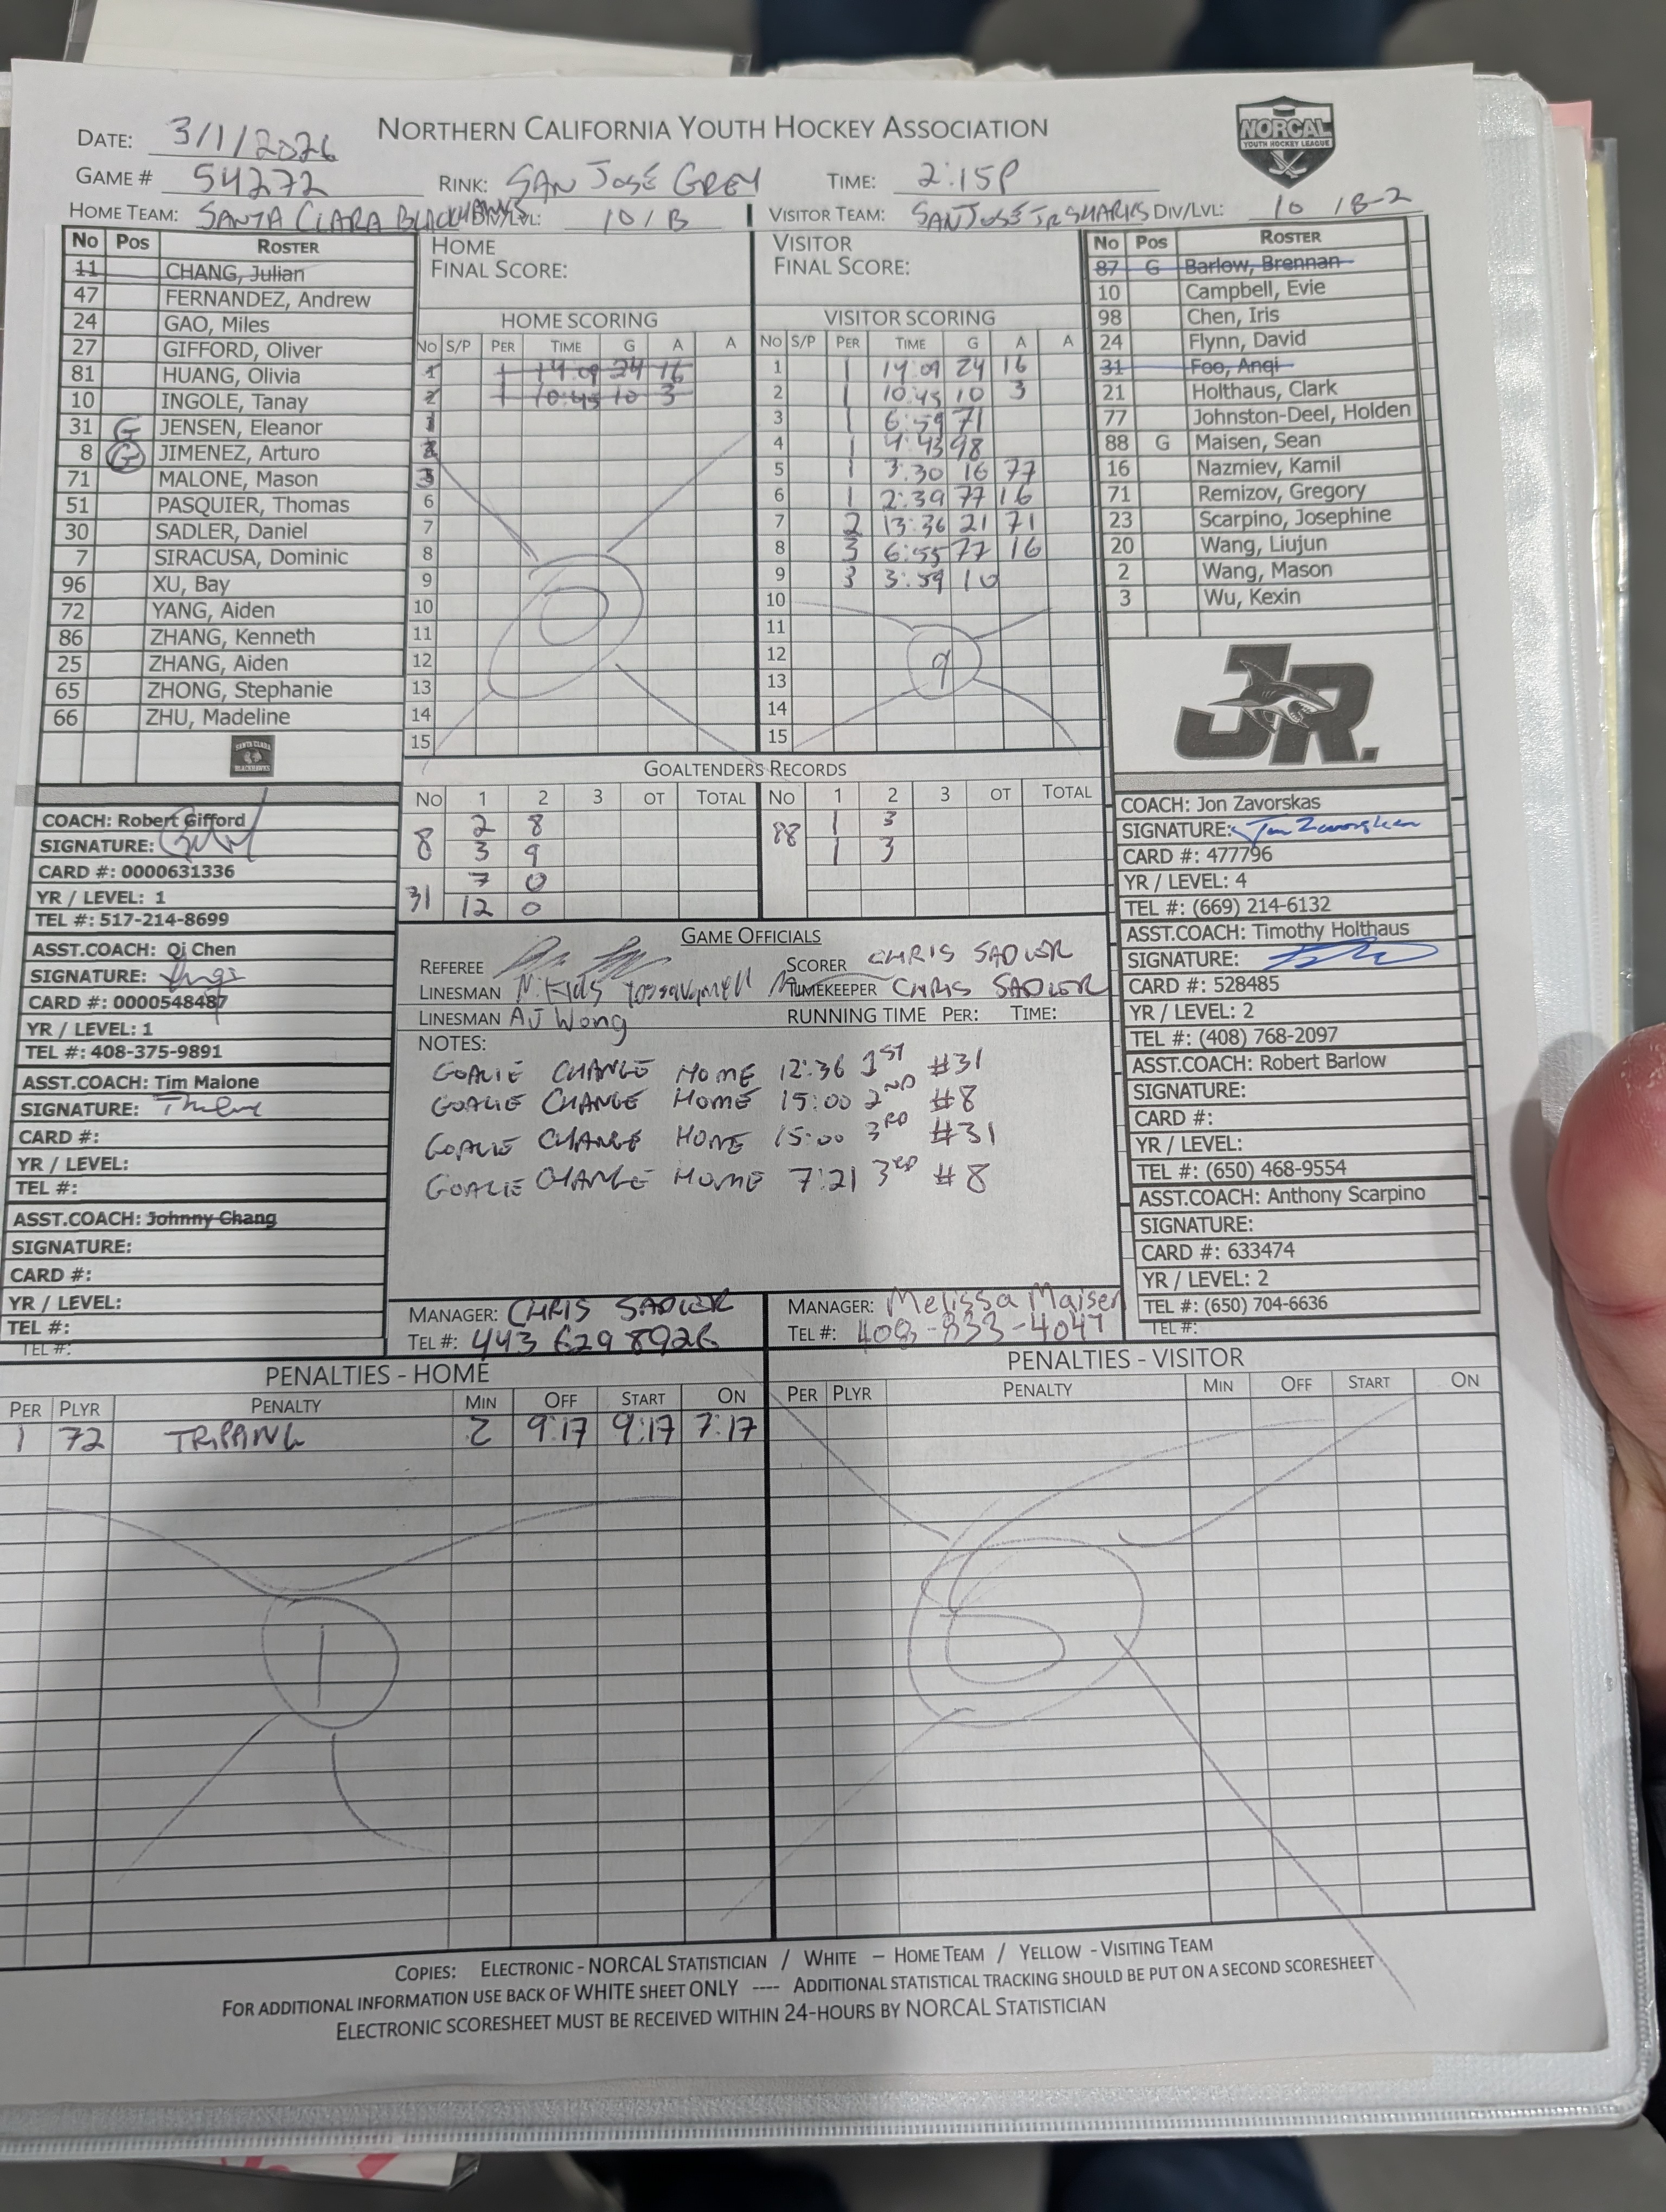 NORTHERN CALIFORNIA YOUTH HOCKEY ASSOCIATION
NORCAL
YOUTH HOCKEY LEAGUE
DATE: 3/1/2026
GAME # 54272 RINK: SAN JOSÉ GREY TIME: 2:15P
HOME TEAM: SANTA CLARA BLACKHAWKS DIV/LVL: 10 / B VISITOR TEAM: SAN JOSÉ JR SHARKS DIV/LVL: 10 / B-2
No Pos ROSTER
11 CHANG, Julian
47 FERNANDEZ, Andrew
24 GAO, Miles
27 GIFFORD, Oliver
81 HUANG, Olivia
10 INGOLE, Tanay
31 G JENSEN, Eleanor
8 G JIMENEZ, Arturo
71 MALONE, Mason
51 PASQUIER, Thomas
30 SADLER, Daniel
7 SIRACUSA, Dominic
96 XU, Bay
72 YANG, Aiden
86 ZHANG, Kenneth
25 ZHANG, Aiden
65 ZHONG, Stephanie
66 ZHU, Madeline
SANTA CLARA
BLACKHAWKS
HOME
FINAL SCORE:
HOME SCORING
No S/P PER TIME G A A
1 1 14:09 24 16
2 1 10:45 10 3
1
2
3
6
7
8
9
10
11
12
13
14
15
0
VISITOR
FINAL SCORE:
VISITOR SCORING
No S/P PER TIME G A A
1 1 14:09 24 16
2 1 10:45 10 3
3 1 6:59 71
4 1 4:43 98
5 1 3:30 16 77
6 1 2:39 77 16
7 2 13:36 21 71
8 3 6:55 77 16
9 3 3:59 10
10
11
12
13
14
15
9
No Pos ROSTER
87 G Barlow, Brennan
10 Campbell, Evie
98 Chen, Iris
24 Flynn, David
31 Foo, Anqi
21 Holthaus, Clark
77 Johnston-Deel, Holden
88 G Maisen, Sean
16 Nazmiev, Kamil
71 Remizov, Gregory
23 Scarpino, Josephine
20 Wang, Liujun
2 Wang, Mason
3 Wu, Kexin
JR.
GOALTENDERS RECORDS
No 1 2 3 OT TOTAL No 1 2 3 OT TOTAL
8 2 8 88 1 3
3 9 1 3
31 7 0
12 0
COACH: Robert Gifford
SIGNATURE:
CARD #: 0000631336
YR / LEVEL: 1
TEL #: 517-214-8699
ASST.COACH: Qi Chen
SIGNATURE:
CARD #: 0000548487
YR / LEVEL: 1
TEL #: 408-375-9891
ASST.COACH: Tim Malone
SIGNATURE:
CARD #:
YR / LEVEL:
TEL #:
ASST.COACH: Johnny Chang
SIGNATURE:
CARD #:
YR / LEVEL:
TEL #:
TEL #:
GAME OFFICIALS
REFEREE SCORER CHRIS SADLER
LINESMAN TIMEKEEPER CHRIS SADLER
LINESMAN AJ Wong RUNNING TIME PER: TIME:
NOTES:
GOALIE CHANGE HOME 12:36 1ST #31
GOALIE CHANGE HOME 15:00 2ND #8
GOALIE CHANGE HOME 15:00 3RD #31
GOALIE CHANGE HOME 7:21 3RD #8
MANAGER: CHRIS SADLER
TEL #: 443 629 8926
MANAGER: Melissa Maisen
TEL #: 408-833-4047
COACH: Jon Zavorskas
SIGNATURE: Jon Zavorskas
CARD #: 477796
YR / LEVEL: 4
TEL #: (669) 214-6132
ASST.COACH: Timothy Holthaus
SIGNATURE:
CARD #: 528485
YR / LEVEL: 2
TEL #: (408) 768-2097
ASST.COACH: Robert Barlow
SIGNATURE:
CARD #:
YR / LEVEL:
TEL #: (650) 468-9554
ASST.COACH: Anthony Scarpino
SIGNATURE:
CARD #: 633474
YR / LEVEL: 2
TEL #: (650) 704-6636
TEL #:
PENALTIES - HOME
PER PLYR PENALTY MIN OFF START ON
1 72 TRIPPING 2 9:17 9:17 7:17
1
PENALTIES - VISITOR
PER PLYR PENALTY MIN OFF START ON
0
COPIES: ELECTRONIC - NORCAL STATISTICIAN / WHITE – HOME TEAM / YELLOW - VISITING TEAM
FOR ADDITIONAL INFORMATION USE BACK OF WHITE SHEET ONLY ---- ADDITIONAL STATISTICAL TRACKING SHOULD BE PUT ON A SECOND SCORESHEET
ELECTRONIC SCORESHEET MUST BE RECEIVED WITHIN 24-HOURS BY NORCAL STATISTICIAN